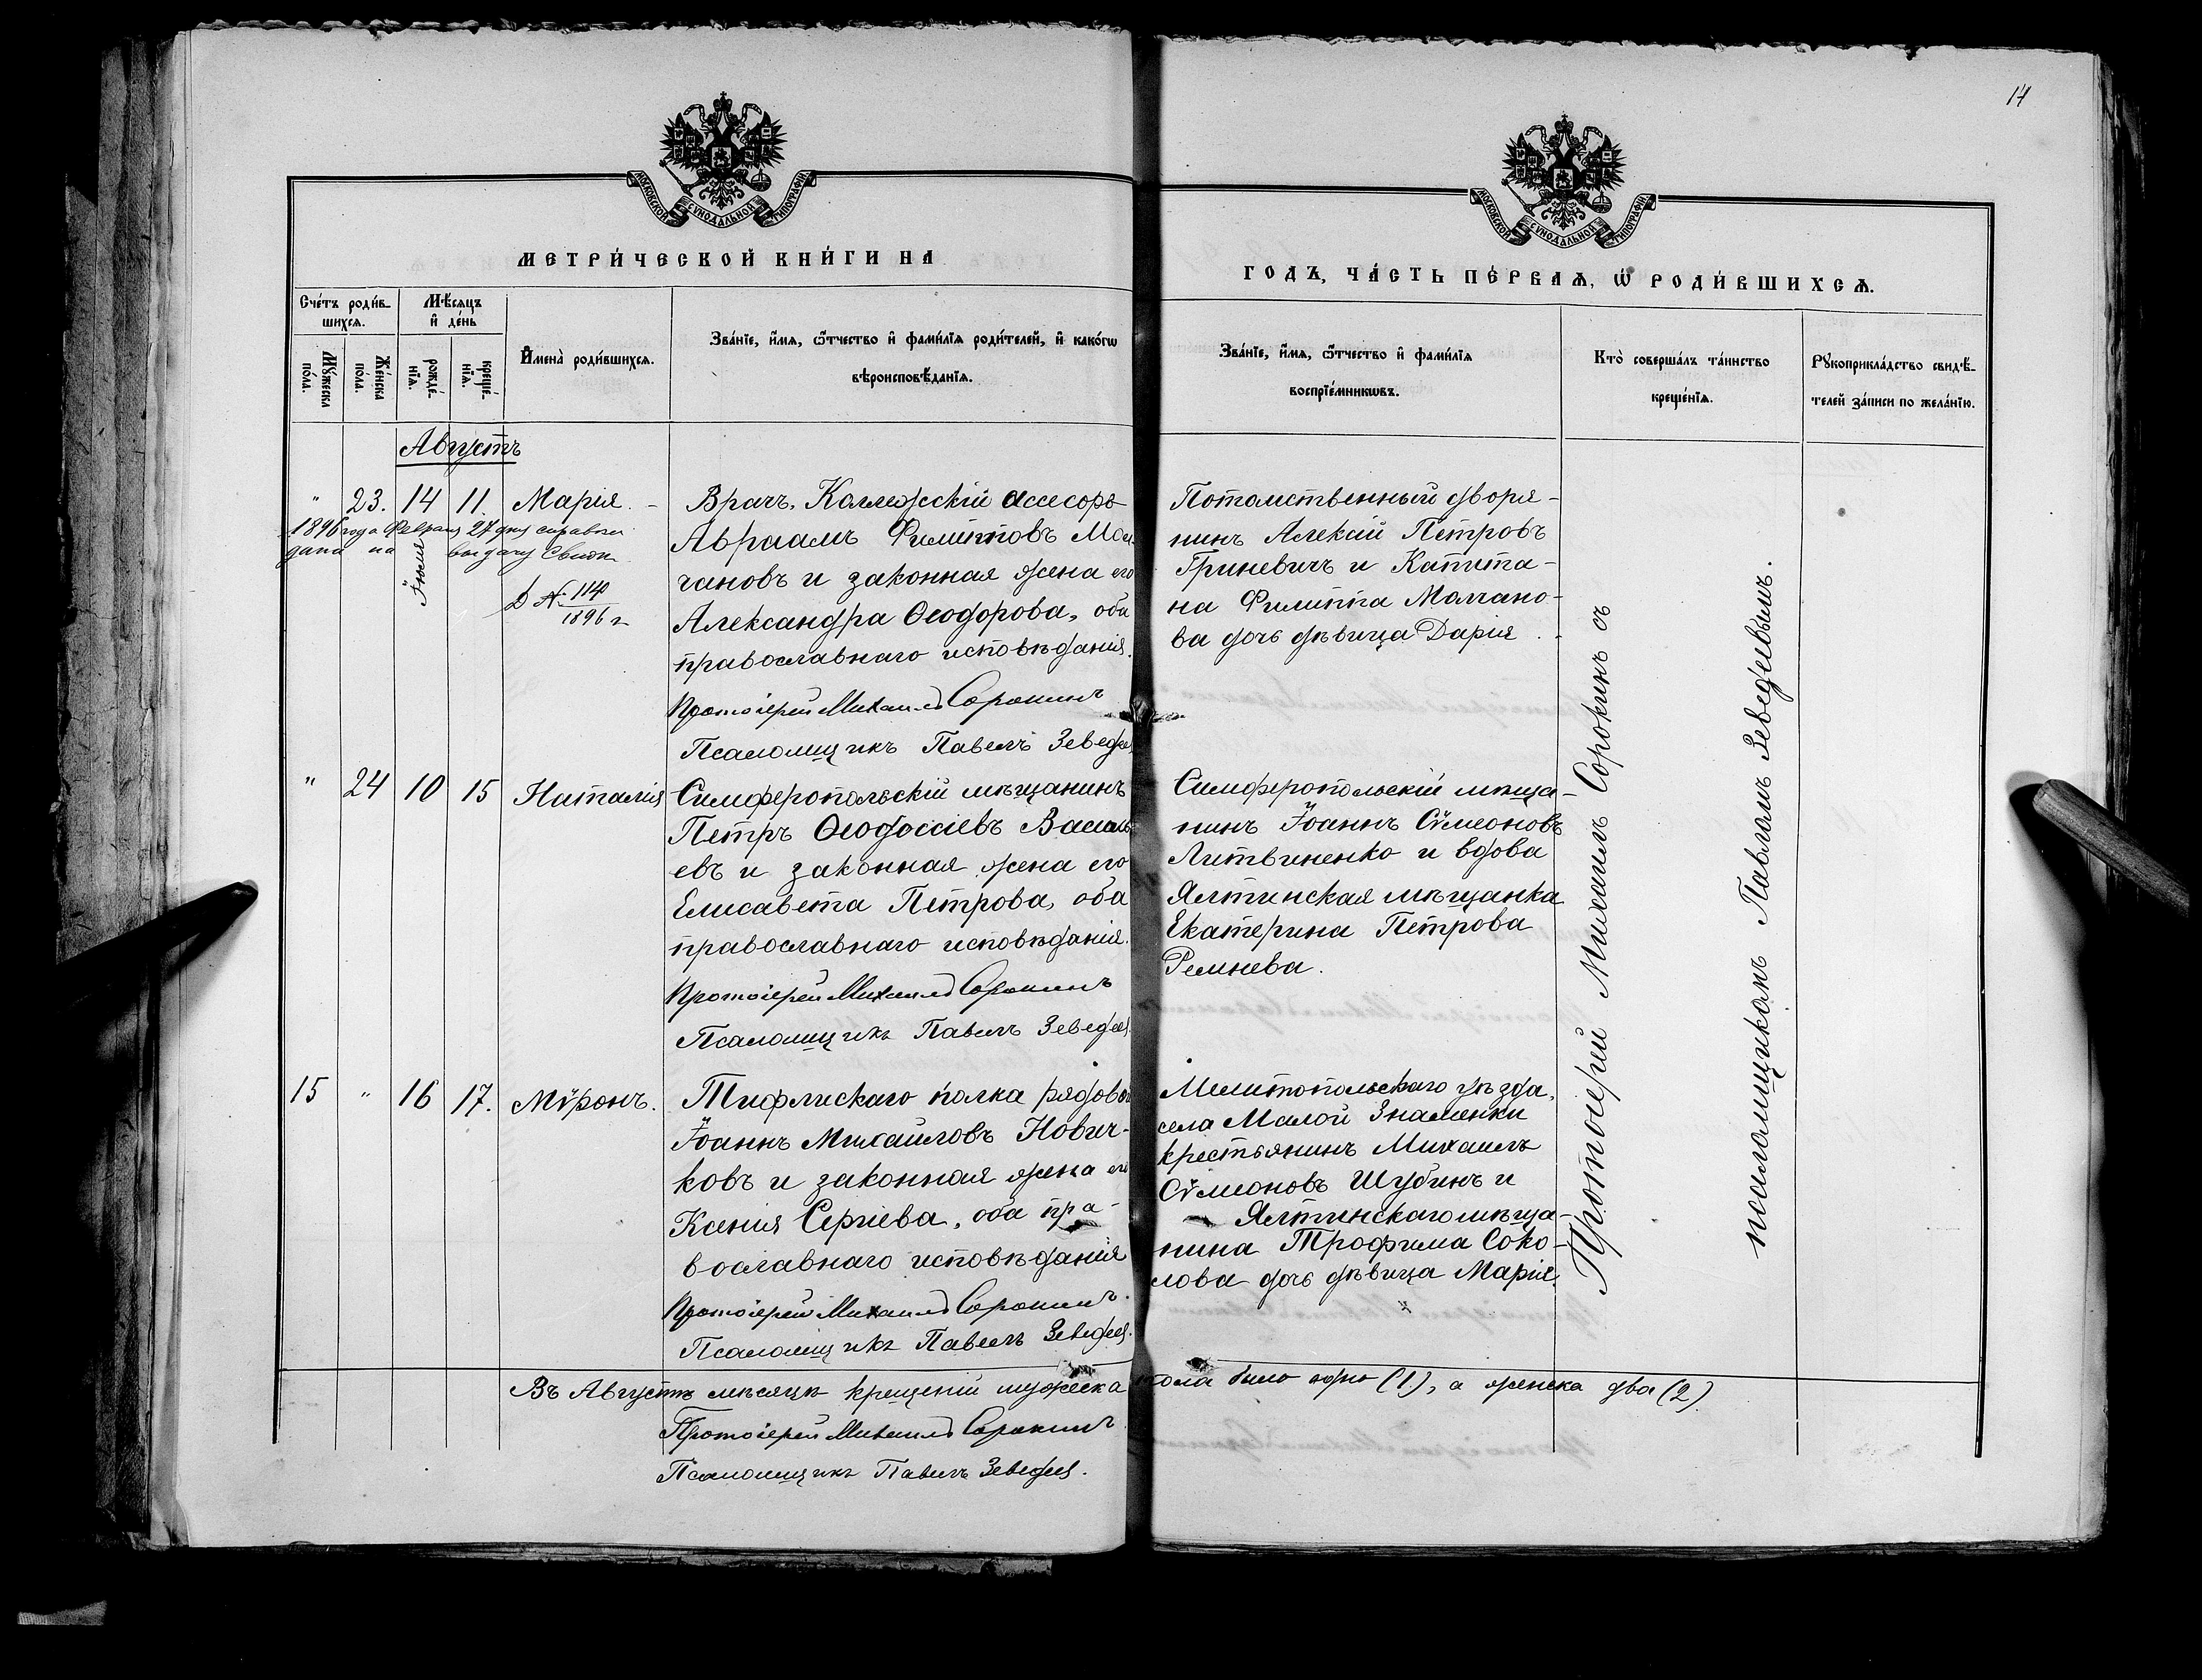 14
МОСКОВСКОЙ СѴНОДАЛЬНОЙ ТИПОГРАФІИ
МОСКОВСКОЙ СѴНОДАЛЬНОЙ ТИПОГРАФІИ
МЕТРИ́ЧЕСКОЙ КНИ́ГИ НА
ГОДЪ, ЧА́СТЬ ПЕ́РВАѦ, Ѡ҆ РОДИ́ВШИХСѦ.
Сче́тъ роди́в-
шихсѧ.
Мѣ́сѧцъ
и҆ де́нь
Мꙋ́жеска
по́ла.
Же́нска
по́ла.
рожде́-
нїѧ.
креще́-
нїѧ.
И҆мена̀ роди́вшихсѧ.
Зва́нїе, и҆́мѧ, ѻ҆́тчество и҆ фами́лїѧ роди́телей, и҆ како́гѡ
вѣроисповѣ́данїѧ.
Зва́нїе, и҆́мѧ, ѻ҆́тчество и҆ фами́лїѧ
воспрїе́мникѡвъ.
Кто̀ соверша́лъ та́инство
креще́нїѧ.
Рꙋкоприкла́дство свидѣ́-
телей за́писи по жела́нїю.
Августъ
" 23. 14 11. Марія. -
Іюля
1896 года Февраля 27 дня справка
дана на выдачу Свид.
D № 114
1896 г
Врачъ, Коллежскій Ассесоръ
Авраамъ Филипповъ Мол-
чановъ и законная жена его
Александра Ѳеодорова, оба
православнаго исповѣданія.
Протоіерей Михаилъ Сорокинъ
Псаломщикъ Павелъ Зеведеев
Потомственный дворя-
нинъ Алексій Петровъ
Гриневичъ и Капита-
на Филиппа Молчано-
ва дочь дѣвица Дарія.
" 24 10 15 Наталія
Симферопольскій мѣщанинъ
Петръ Ѳеодосіевъ Василь-
евъ и законная жена его
Елисавета Петрова, оба
православнаго исповѣданія.
Протоіерей Михаилъ Сорокинъ
Псаломщикъ Павелъ Зеведеев
Симферопольскій мѣща-
нинъ Іоаннъ Сѵмеоновъ
Литвиненко и вдова
Ялтинская мѣщанка
Екатерина Петрова
Ремнева.
15 " 16 17. Мѵронъ.
Тифлискаго полка рядовой
Іоаннъ Михаиловъ Нович-
ковъ и законная жена его
Ксенія Сергіева, оба пра-
вославнаго исповѣданія
Протоіерей Михаилъ Сорокинъ.
Псаломщикъ Павелъ Зеведеев.
Мелитопольскаго уѣзда,
села Малой Знаменки
крестьянинъ Михаилъ
Сѵмеоновъ Шубинъ и
Ялтинскаго мѣща-
нина Трофима Соко-
лова дочь дѣвица Марія.
Протоіерей Михаилъ Сорокинъ съ
псаломщикомъ Павломъ Зеведеевымъ.
Въ Августѣ мѣсяцѣ крещеній мужеска пола было одно (1), а женска два (2).
Протоіерей Михаилъ Сорокинъ.
Псаломщикъ Павелъ Зеведеев.